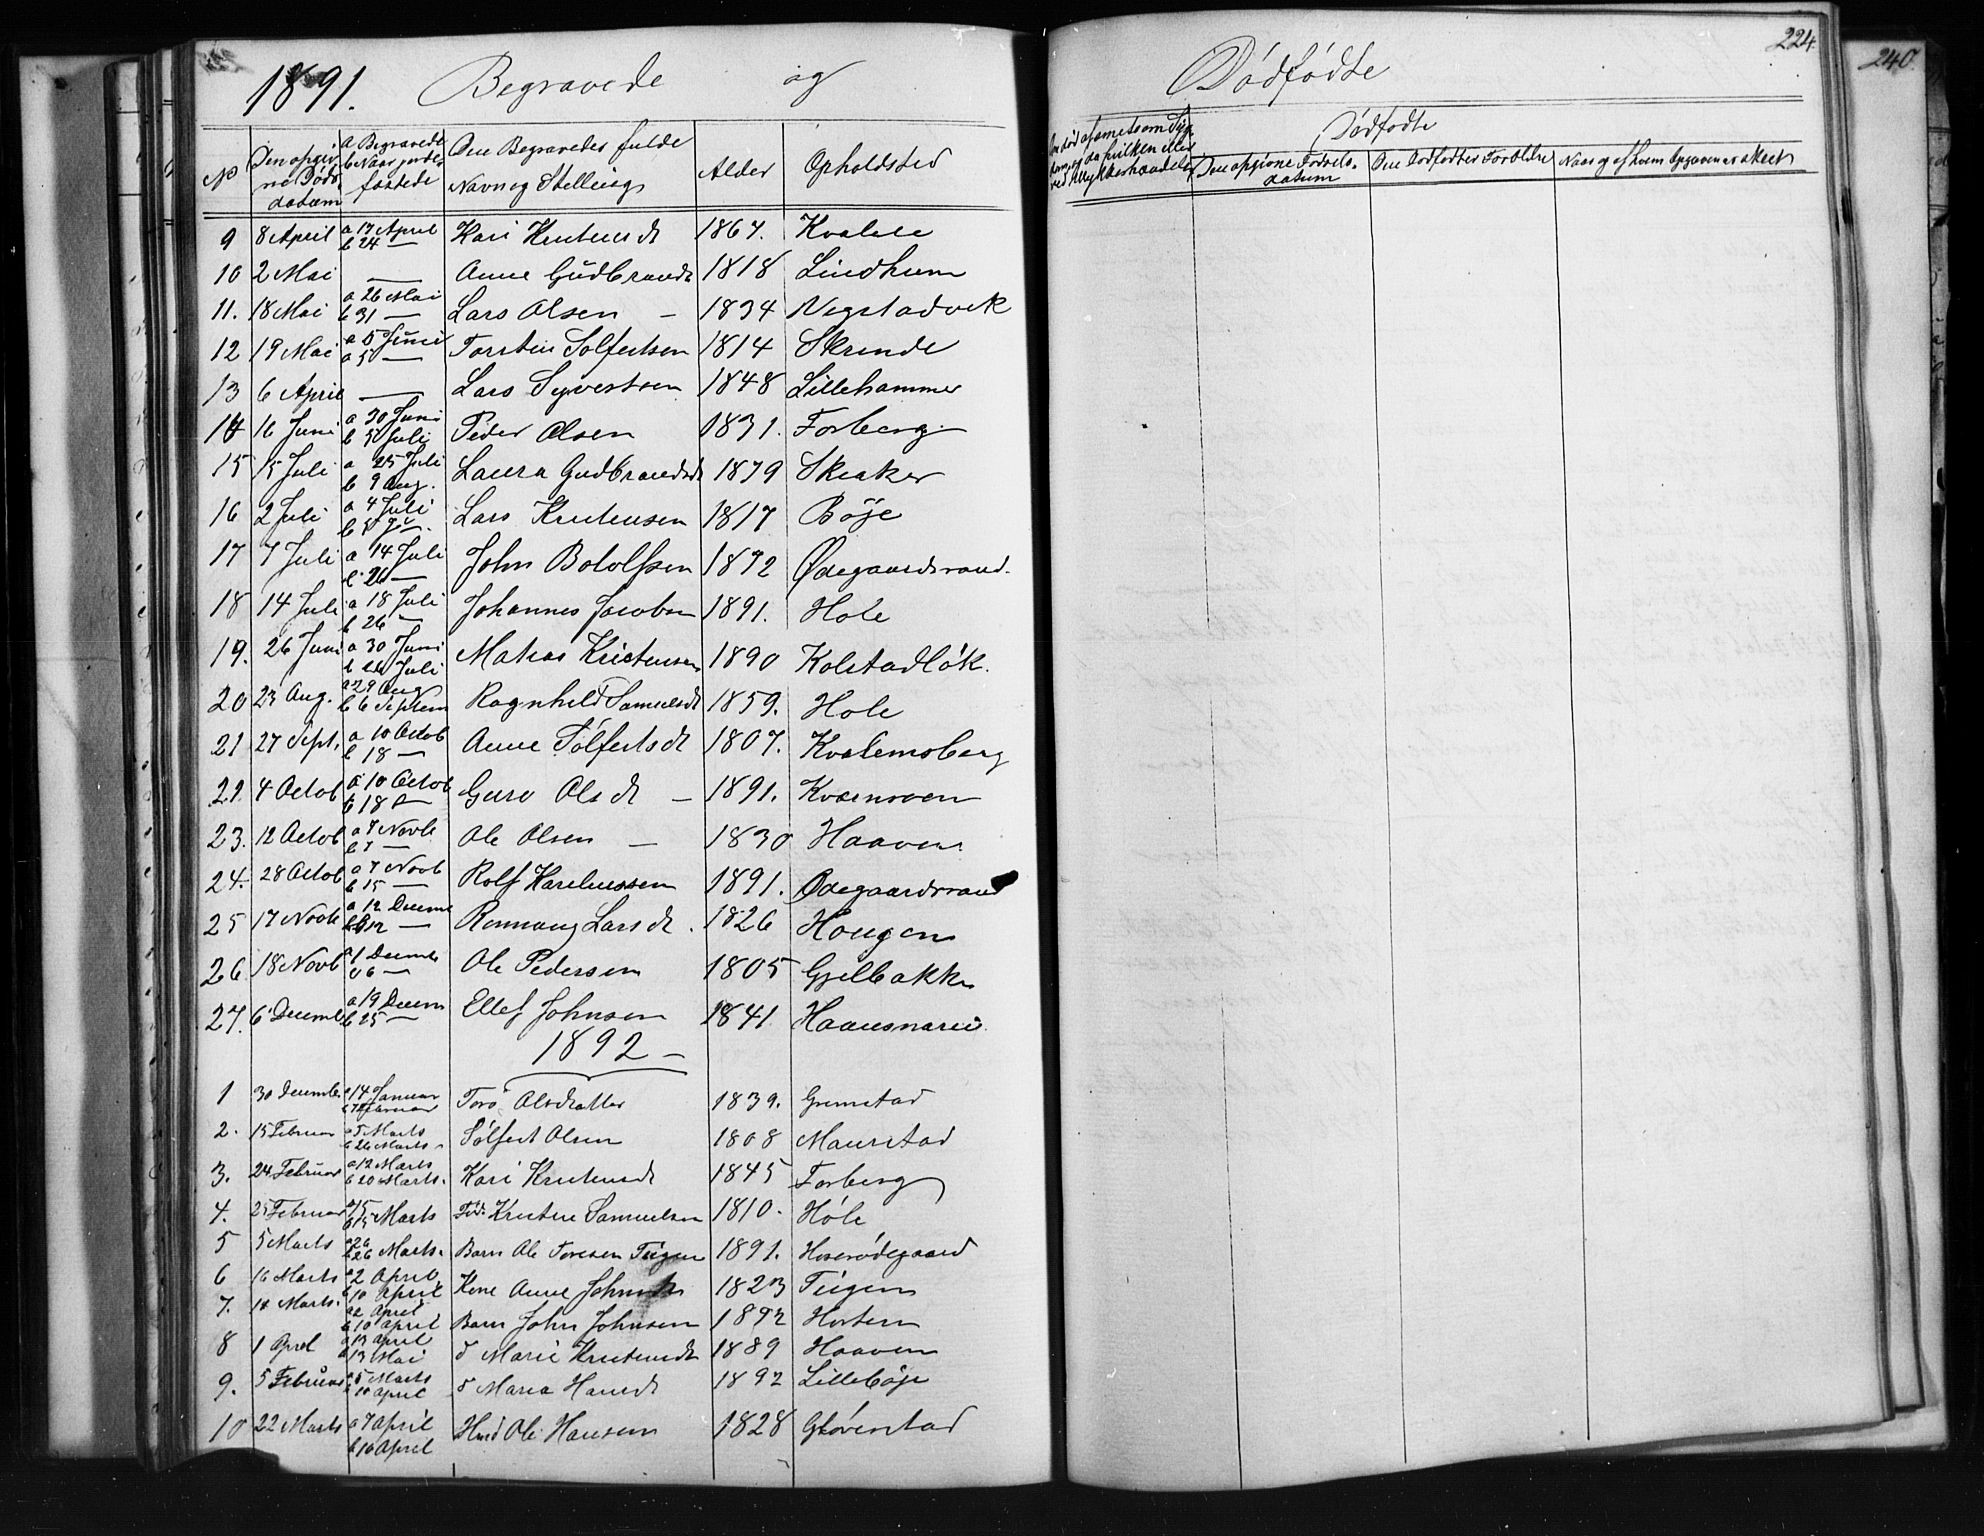 224.
240.
1891. Begravede og Dødfødte
No Den opgivne Døds datum a Begravede b Naar jordfæstede Den Begravedes fulde Navn og Stelling Alder Opholdsted
Dødfødte
Den opgivne Fødsels datum Den Dødfødtes Forældre Naar og af hvem Opgaven er skeet
9 8 April a 17 April b 24 — Kari Kristensdt 1867. Kvalele
10 2 Mai — Anne Gudbrandsdt 1818 Lindhum
11. 18 Mai a 26 Mai b 31 — Lars Olsen — 1834 Negstadvek
12 19 Mai a 5 Juni a 5 — Torsten Solfestsen 1814 Skrinde
13 6 April — Lars Syvertsen 1848 Lillehammer
14 16 Juni a 30 Juni b 5 Juli Peder Olsen 1831. Forberg
15 15 Juli a 25 Juli b 9 Aug. Laura Gudbrandsdt 1879 Skiaker
16 2 Juli a 4 Juli Lars Kristensen 1817 Böje
17 7 Juli a 14 Juli b 26 — John Botolfsen 1892 Ødegaardsrand.
18 14 Juli a 18 Juli b 26 — Johannes Jacobsen 1891. Hole
19. 26 Juni a 30 Juni b 26 Juli Matias Kristensen 1890 Kolstadløk.
20 23 Aug. a 29 Aug b 6 Septem Ragnhild Samuelsdt 1859. Hole
21 27 Sept. a 10 Octob b 18 — Anne Sölfestsdt 1807. Kvalemsberg
22. 4 Octob a 10 Octob b 18 — Guro Olsdt — 1891. Kværnveen
23. 12 Octob a 7 Novb b 7 — Ole Olsen — 1830 Haaven
24. 28 Octob a 7 Novb b 15 — Rolf Hareliussen 1891. Ødegaardsrand
25 17 Novb a 12 Decemb b 12 — Ronnaug Larsdt. 1826 Hougen
26. 18 Novb a 1 Decemb b 6 — Ole Pedersen 1805 Gjelbakke
27. 6 Decemb a 19 Decem b 25 — Ellef Johnsen 1841
1892 —
1 30 December a 14 Januar Toro Olsdatter 1839. Gremstad
2. 15 Februar a 5 Marts b 26 Marts Sölfest Olsen 1808 Maurstad
3. 24 Februar a 12 Marts b 20 Marts. Kari Kristensdt 1845 Forberg
4. 25 Februar b 15 Marts Kristen Samuelsen 1810. Höle
5 5 Marts a 26 b 26 Marts. Barn Ole Toresen Teigen 1891. Hoserödegaard
6 16 Marts a 2 April b 10 April Kone Anne 1823 Teigen
7. 18 Marts. a 2 April b 10 April Barn John Johnsen 1892 Horten
8 1 April a 13 April b 13 Mai d Marie Kristensdt 1889 Haaven
9. 5 Februar a 5 Marts b 10 April d Maria Hansdt 1892 Lilleböje
10 22 Marts a 7 April b 10 April Hmd Ole Hansen 1828 Glövenstad